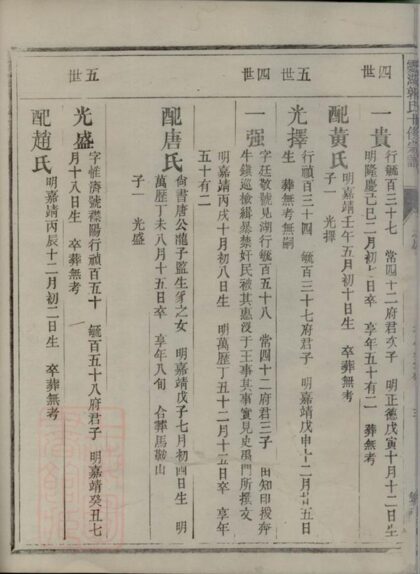 四世
一貴
行毓百三十七 常四十二府君子 明正德戊寅十月十二日生
明隆慶己巳二月初七日卒 享年五十有二 葬無考
配黃氏
明嘉靖壬午五月初十日生 卒葬無考
子一 光擇
五世
光擇
行禎百三十四 毓百三十七府君子 明嘉靖戊申十二月廿五日
生 葬無考無嗣
四世
一强
字廷敬號見湖行毓百五十八 常四十二府君三子 由知印授奔
牛鎮巡檢緝暴禁奸民被其惠沒于王事其事實見史禹門所撰文
明嘉靖丙戌十月初八日生 明萬歷丁丑十二月十二日卒 享年
五十有二
配唐氏
尙書唐公龍子監生豸之女 明嘉靖戊子七月初四日生 明
萬歷丁未八月十五日卒 享年八旬 合葬馬鞍山
子一 光盛
五世
光盛
字惟濟號襟陽行禎百五十 毓百五十八府君子 明嘉靖癸丑七
月十八日生 卒葬無考
配趙氏
明嘉靖丙辰十二月初二日生 卒葬無考